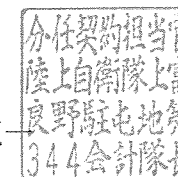 分任契約担当
陸上自衛隊上
良野駐屯地
344会計隊